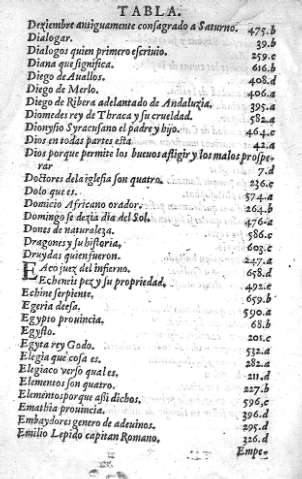 TABLA.
Deziembre antiguamente consagrado a Saturno. 475.b
Dialogar. 39.b
Dialogos quien primero escriuio. 259.c
Diana que significa. 616.b
Diego de Auallos. 408.d
Diego de Merlo. 406.a
Diego de Ribera adelantado de Andaluzia. 395.a
Diomedes rey de Thraca y su crueldad. 582.a
Dionysio Syracusano el padre y hijo. 464.c
Dios en todas partes esta 42.a
Dios porque permite los buenos afligir y los malos prospe
rar 7.d
Doctores dela iglesia son quatro. 236.c
Dolo que es. 574.a
Domicio Africano orador. 264.b
Domingo se dezia dia del Sol. 476.a
Dones de naturaleza. 586.c
Dragones y su historia. 603.c
Druydas quien fueron. 247.a
EAco juez del infierno. 658.d
Echeneis pez y su propriedad. 492.c
Echine serpiente. 659.b
Egeria deesa. 590.a
Egypto prouincia. 68.b
Egysto. 201.c
Egyta rey Godo. 532.a
Elegia que cosa es. 282.a
Elegiaco verso qual es. 211.d
Elementos son quatro. 227.b
Elementos porque asi dichos. 596.c
Emathia prouincia. 396.d
Embaydores genero de adeuinos. 295.d
Emilio Lepido capitan Romano. 326.d
Empe-